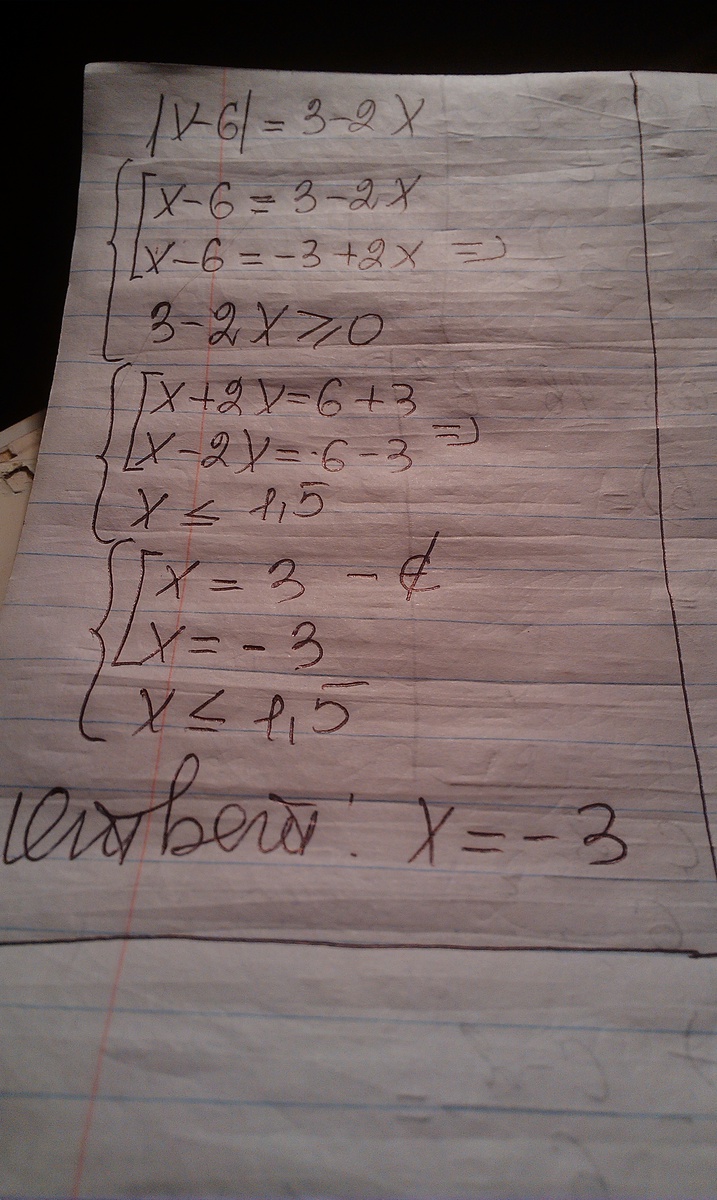 |x-6| = 3-2x
x-6 = 3-2x
x-6 = -3+2x =>
3-2x ⩾ 0
x+2x=6+3
x-2x=-6-3 =>
x ≤ 1,5
x = 3 - ∉
x = -3
x ≤ 1,5
Ответ: x = -3